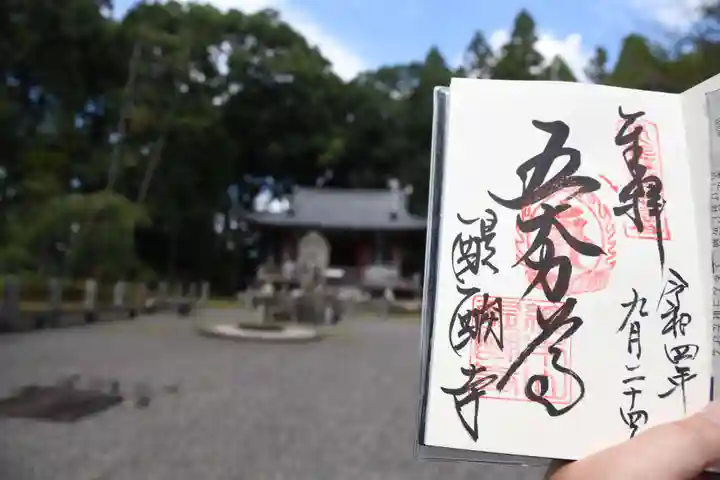 奉拝
令和四年
九月二十四
五大力尊
醍醐寺